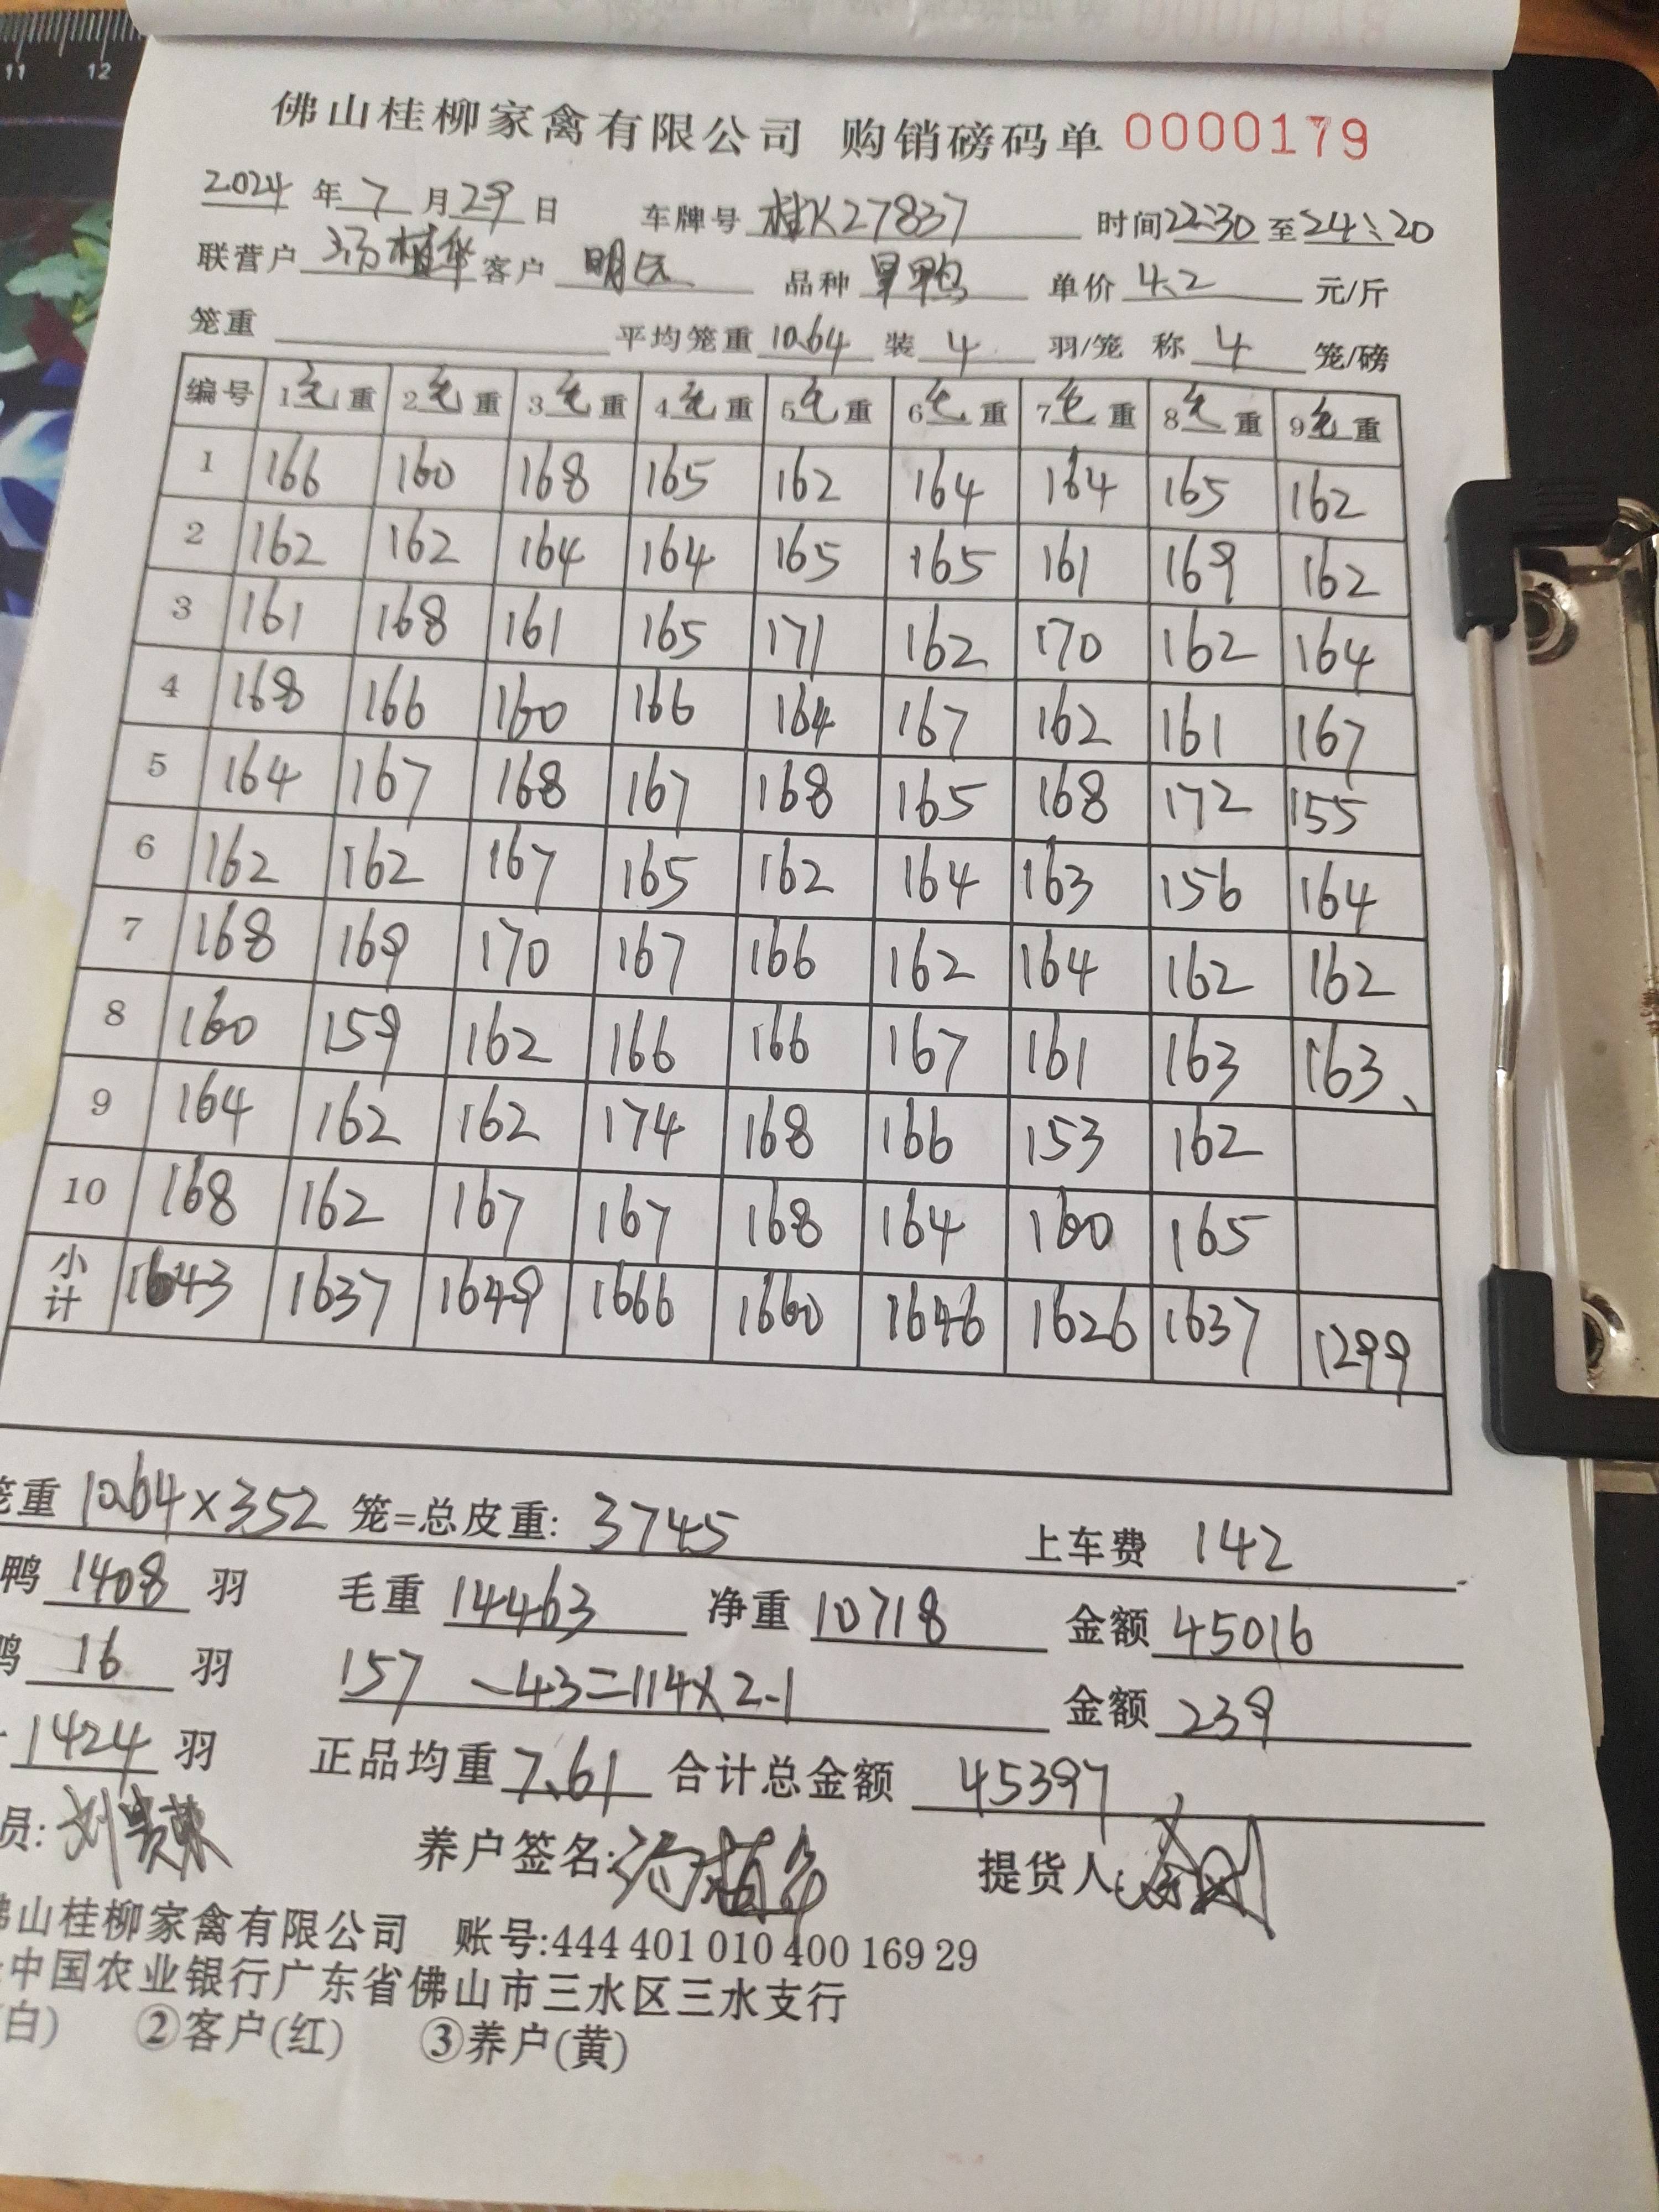 11 12
佛山桂柳家禽有限公司 购销磅码单 0000179
2024 年 7 月 29 日 车牌号 桂K27837 时间 22:30 至 24:20
联营户 客户 明 品种 鸭 单价 4.2 元/斤
笼重 平均笼重 10.64 装 4 羽/笼 称 4 笼/磅
编号 1毛重 2毛重 3毛重 4毛重 5毛重 6毛重 7毛重 8毛重 9毛重
1 166 160 168 165 162 164 164 165 162
2 162 162 164 164 165 165 161 169 162
3 161 168 161 165 171 162 170 162 164
4 168 166 160 166 164 167 162 161 167
5 164 167 168 167 168 165 168 172 155
6 162 162 167 165 162 164 163 156 164
7 168 169 170 167 166 162 164 162 162
8 160 159 162 166 166 167 161 163 163、
9 164 162 162 174 168 166 153 162
10 168 162 167 167 168 164 160 165
小计 1643 1637 1649 1666 1660 1646 1626 1637 1299
笼重 10.64×352 笼=总皮重: 3745 上车费 142
鸭 1408 羽 毛重 14463 净重 10718 金额 45016
鸭 16 羽 157 -43=114×2.1 金额 239
1424 羽 正品均重 7.61 合计总金额 45397
员: 刘 养户签名: 提货人:
佛山桂柳家禽有限公司 账号:444 401 010 400 169 29
:中国农业银行广东省佛山市三水区三水支行
(白) ②客户(红) ③养户(黄)